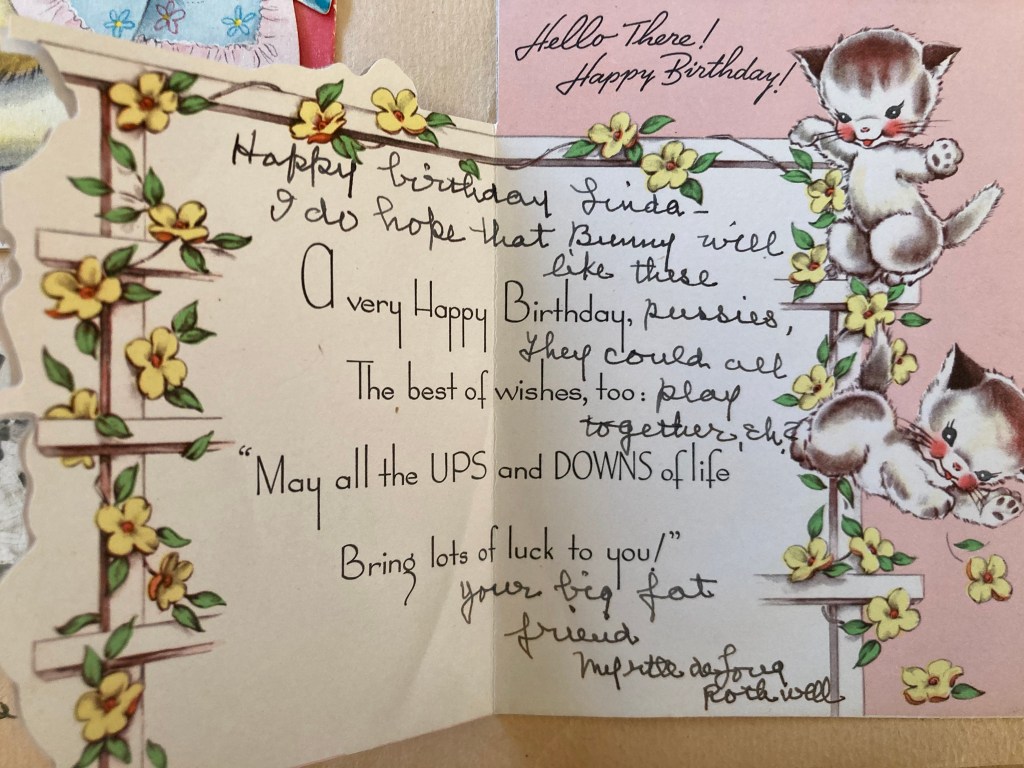 Hello There!
Happy Birthday!
Happy birthday Linda-
I do hope that Bunny will
like these
A very Happy Birthday, pussies,
They could all
The best of wishes, too: play
together, eh?
"May all the UPS and DOWNS of life
Bring lots of luck to you!"
your big fat
friend
Myrtle
Rothwell